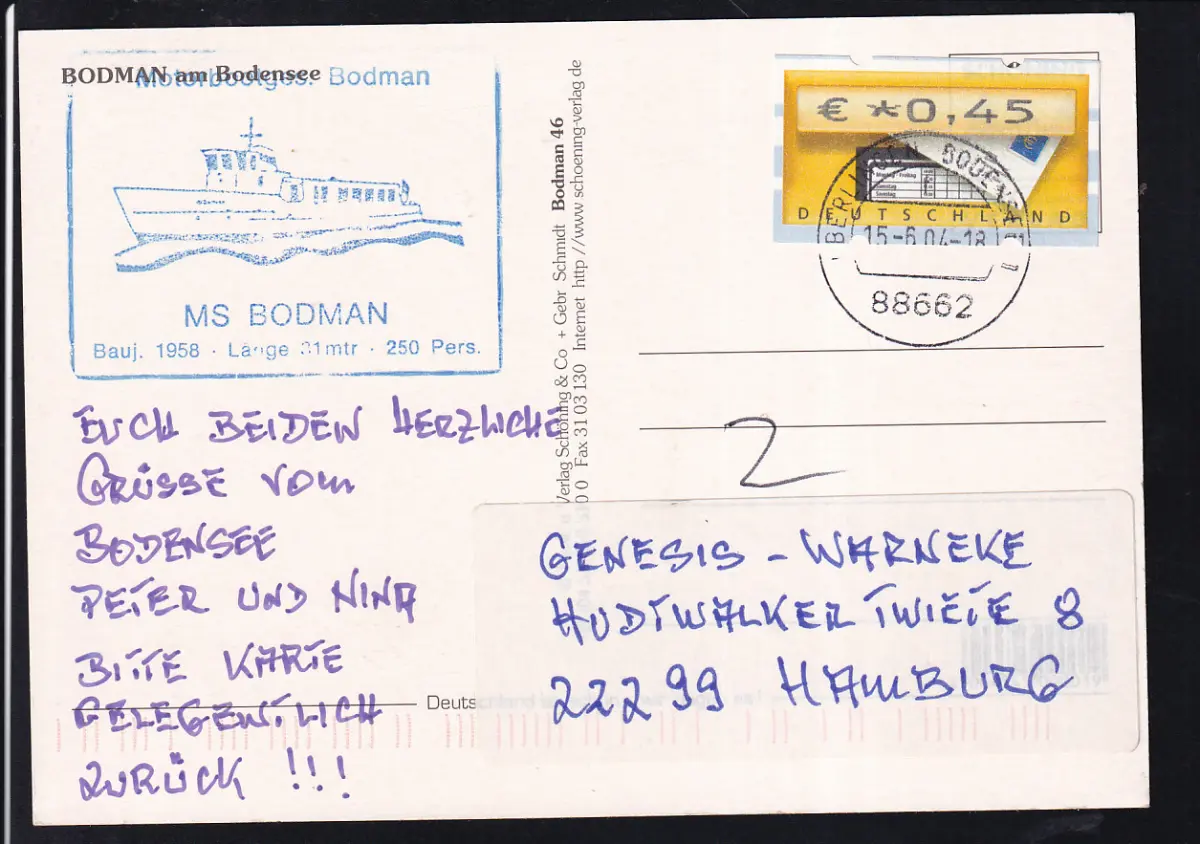 BODMAN am Bodensee
Motorbootges. Bodman
MS BODMAN
Bauj. 1958 · Länge 31mtr · 250 Pers.
EUCH BEIDEN HERZLICHE
GRÜSSE VOM
BODENSEE
PETER UND NINA
BITTE KARTE
GELEGENTLICH
ZURÜCK !!!
Verlag Schöning & Co + Gebr Schmidt Bodman 46
Fax 31 03 130 Internet http //www schoening-verlag de
€ *0,45
Montag - Freitag
Samstag
DEUTSCHLAND
BERLINGEN BODENSEE
15-6.04-18
88662
2
GENESIS - WARNEKE
HUDTWALKER TWIETE 8
22299 HAMBURG